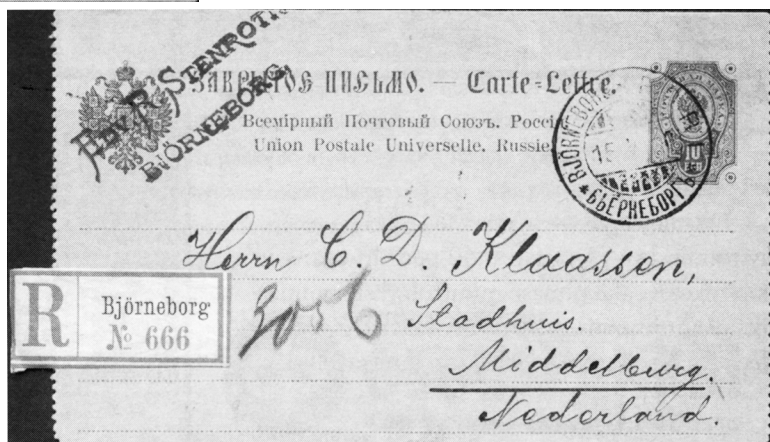 EDV. R. STENROTH
BJÖRNEBORG.
ЗАКРЫТОЕ ПИСЬМО. — Carte-Lettre.
Всемірный Почтовый Союзъ. Россія
Union Postale Universelle. Russie.
BJÖRNEBORG
15
БЬЕРНЕБОРГЪ
10
Herrn C. D. Klaassen,
Stadhuis.
Middelburg.
Nederland.
R
Björneborg
№ 666